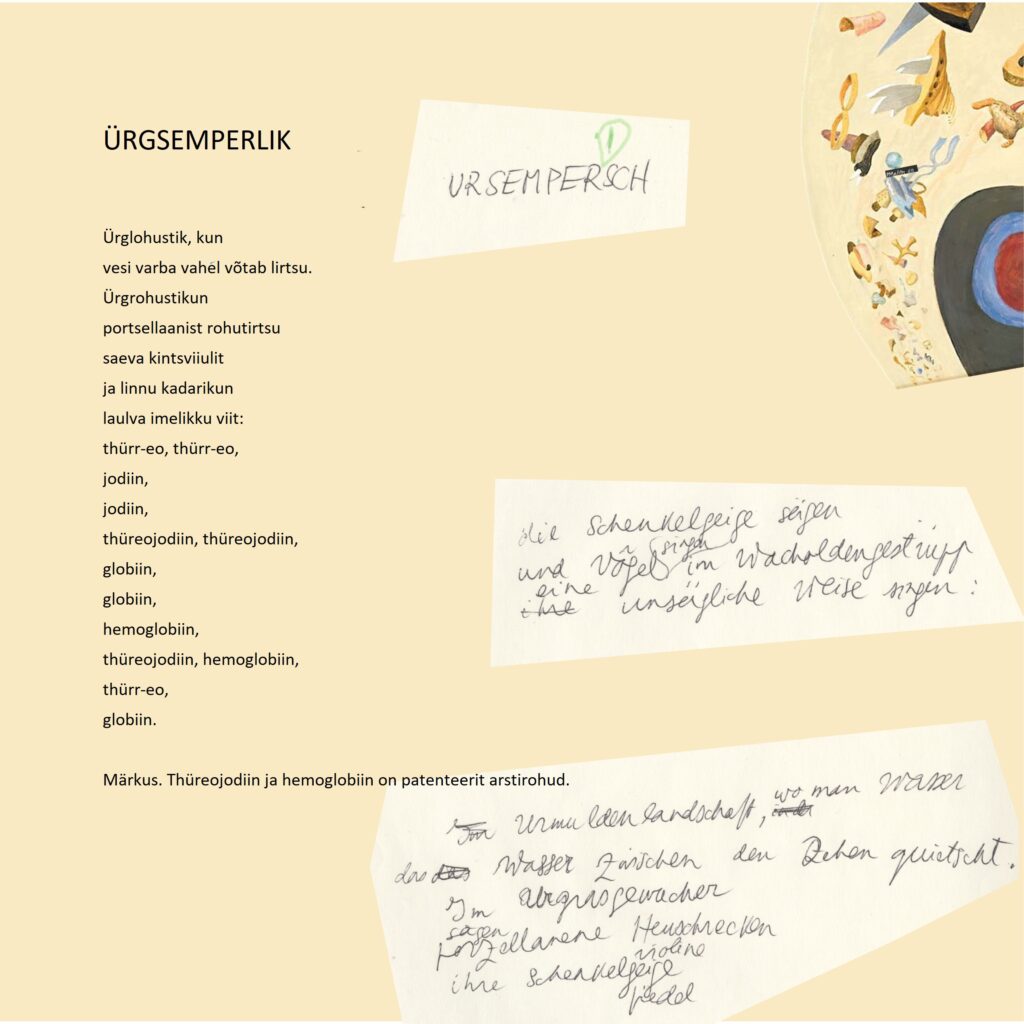 ÜRGSEMPERLIK
Ürglohustik, kun
vesi varba vahel võtab lirtsu.
Ürgrohustikun
portsellaanist rohutirtsu
saeva kintsviiulit
ja linnu kadarikun
laulva imelikku viit:
thürr-eo, thürr-eo,
jodiin,
jodiin,
thüreojodiin, thüreojodiin,
globiin,
globiin,
hemoglobiin,
thüreojodiin, hemoglobiin,
thürr-eo,
globiin.
Märkus. Thüreojodiin ja hemoglobiin on patenteerit arstirohud.
!
URSEMPERSCH
die Schenkelgeige seigen
singen
und Vögel im Wacholdengestrüpp
eine
ihre unsägliche Weise singen:
wo
Im Urmuldenlandschaft, man Wasser
das Wasser zwischen den Zehen quietscht.
Im
sägen
porzellanene Heuschrecken
violine
ihre Schenkelgeige
fiedel